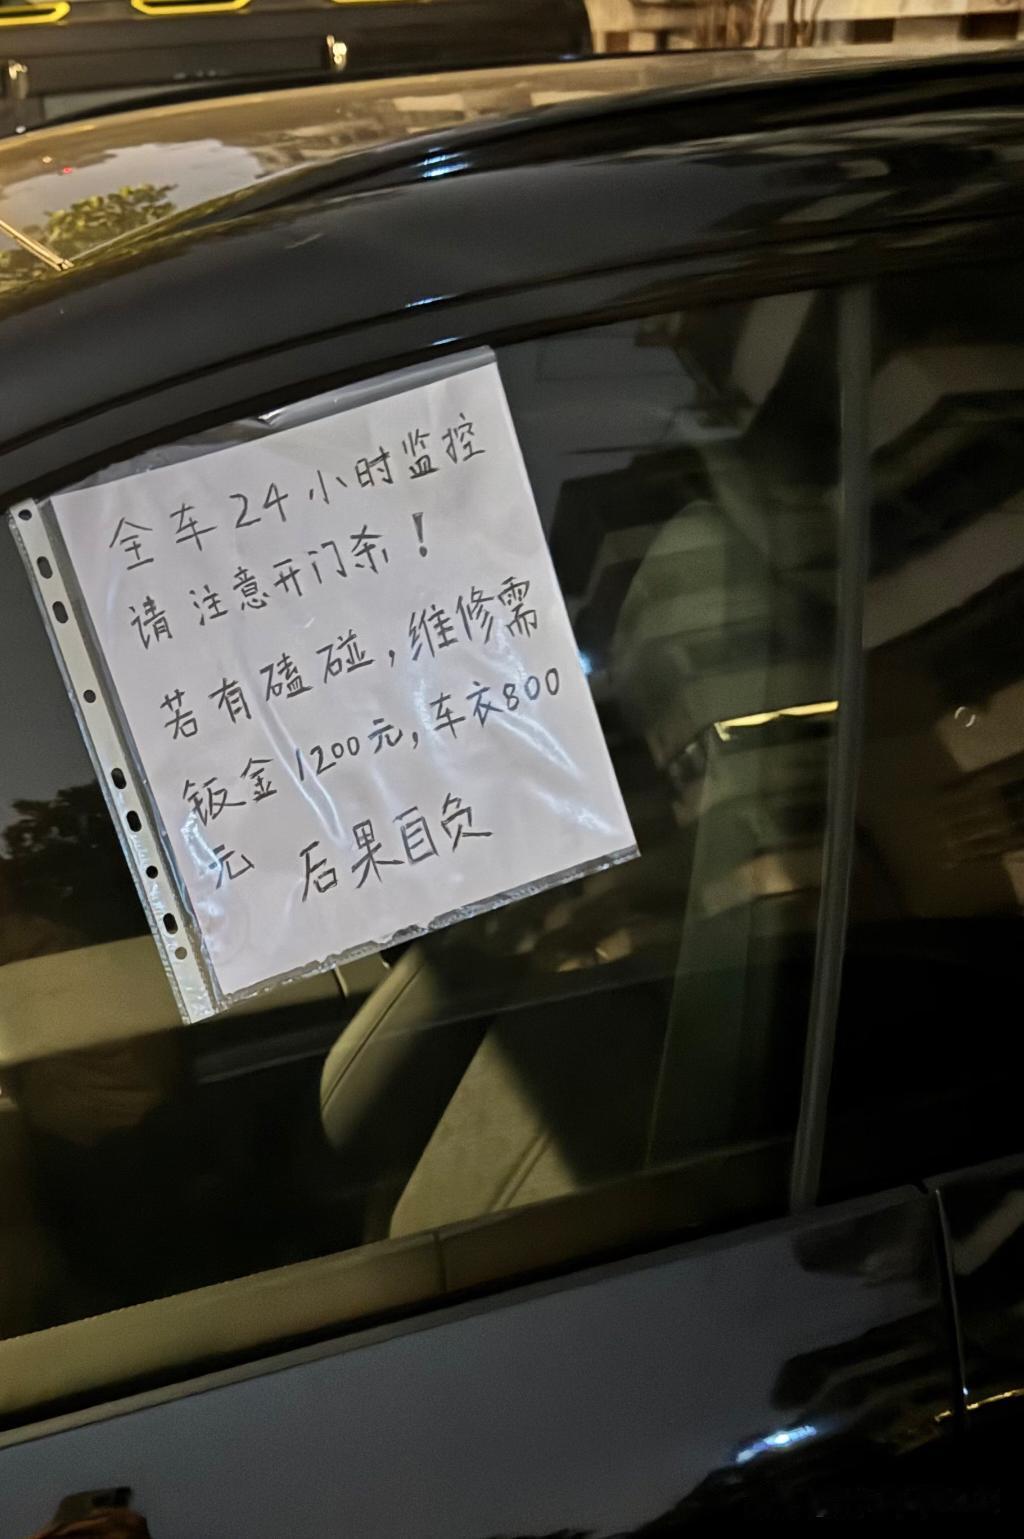 全车24小时监控
请注意开门杀！
若有磕碰，维修需
钣金1200元，车衣800
元 后果自负